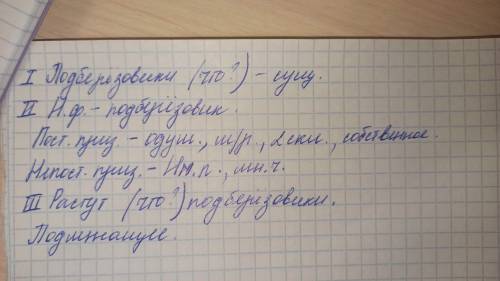 I Подберёзовики (что?) – сущ.
II Н.ф. – подберёзовик.
Пост. призн. – одуш., м/р., 2 скл., собственное.
Непост. призн. – Им. п., мн. ч.
III Растут (что?) подберёзовики.
Подлежащее.